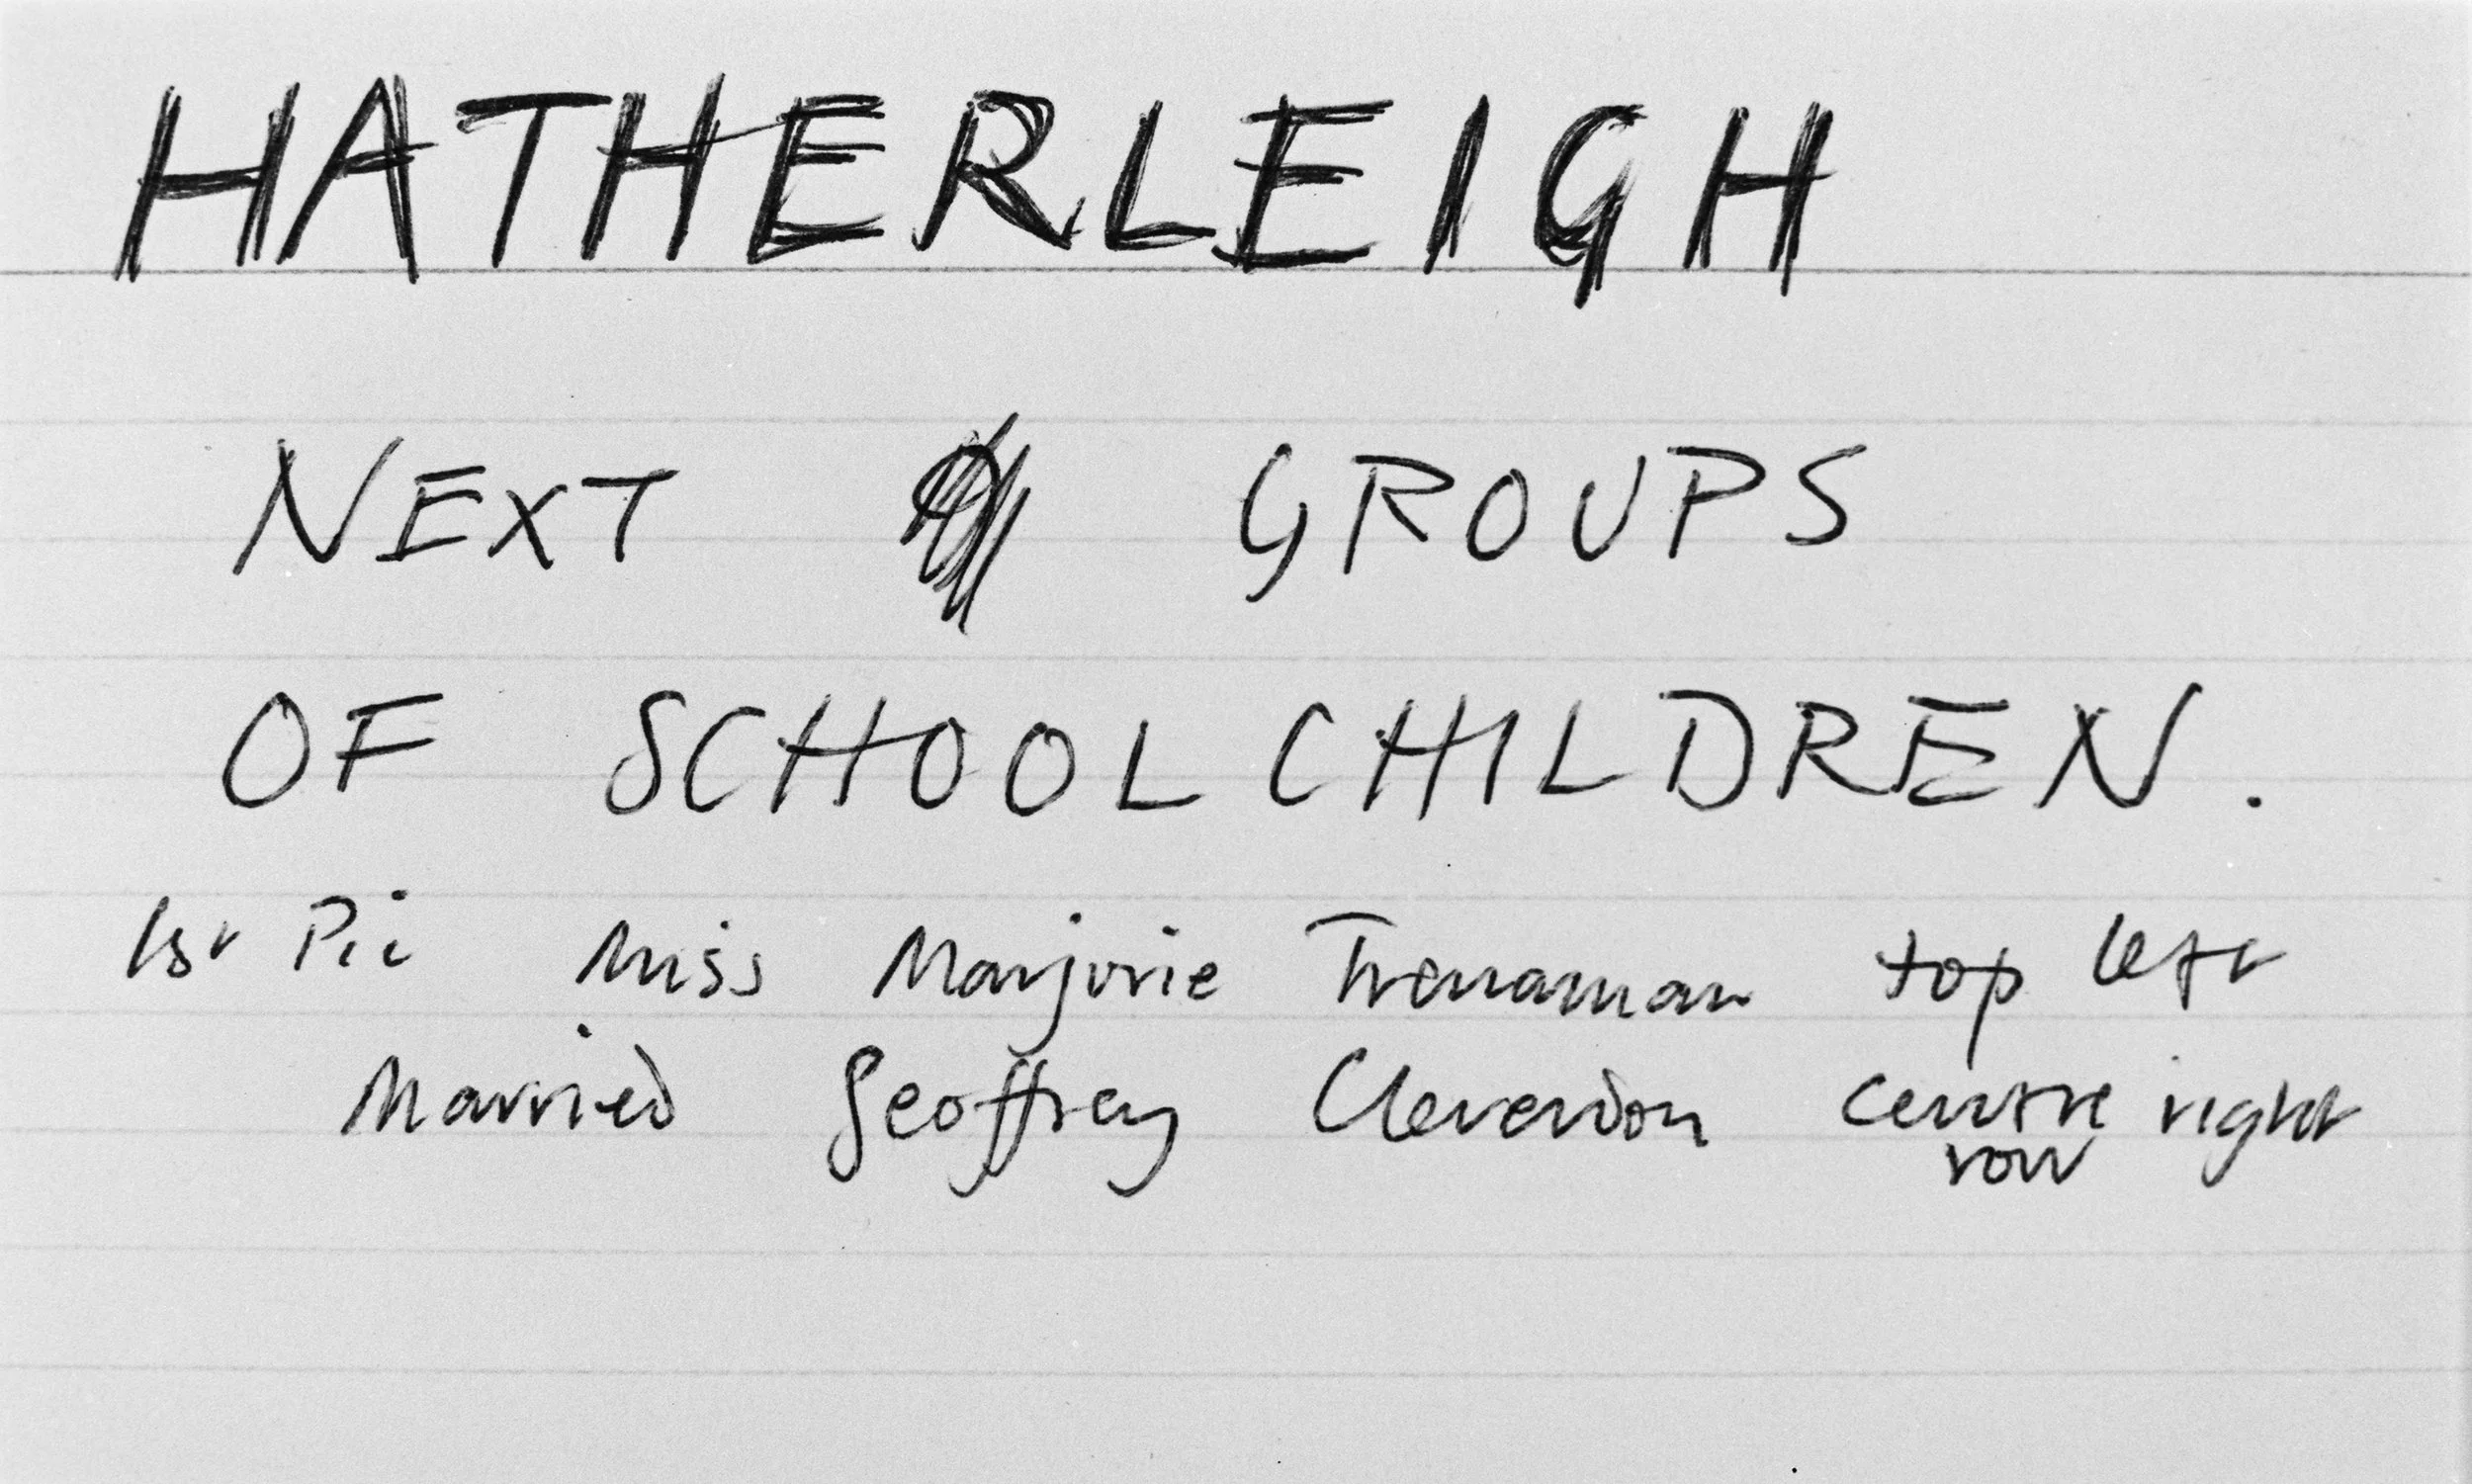 HATHERLEIGH
NEXT GROUPS
OF SCHOOL CHILDREN.
1st Pic Miss Marjorie Trenaman top left
Married Geoffrey Cleverdon centre right
row